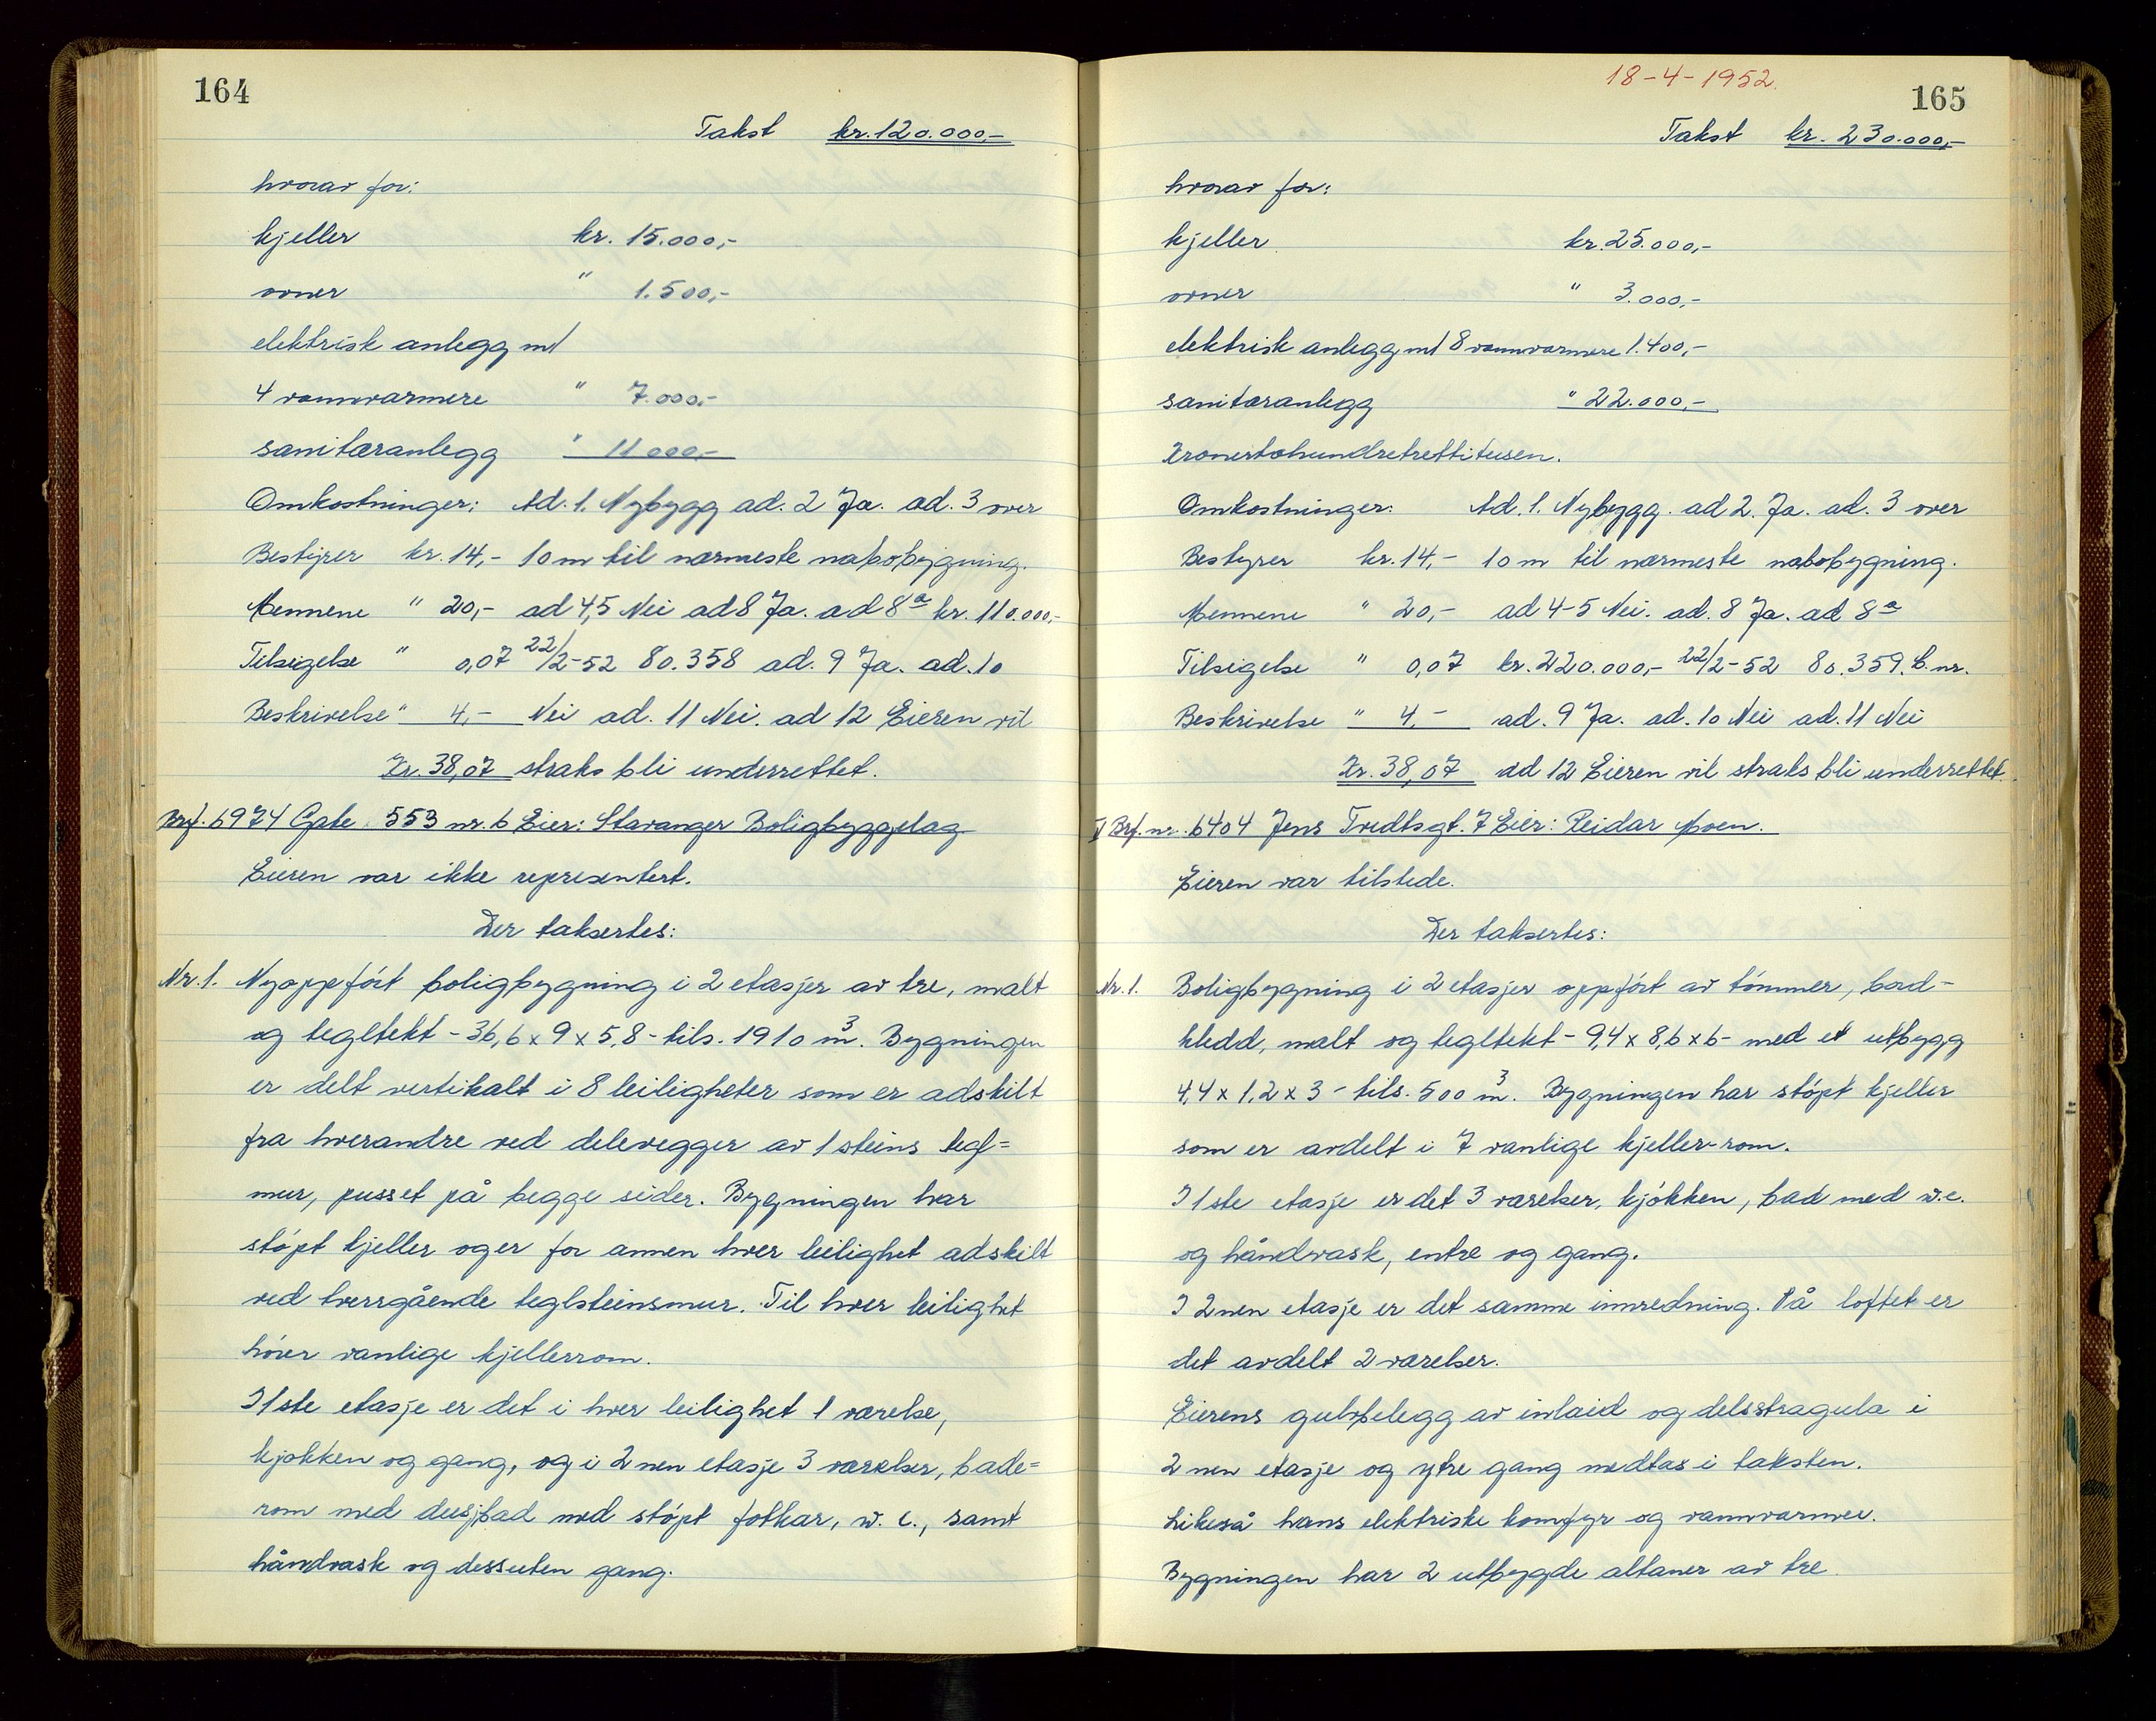 164
Takst kr. 120.000,-
hvorav for:
kjeller kr. 15.000,-
ovner " 1.500,-
elektrisk anlegg m/
4 vannvarmere " 7.000,-
sanitæranlegg " 11000,-
Omkostninger: Ad. 1. Nybygg ad. 2 Ja. ad. 3 over
Bestyrer kr. 14,- 10 m til nærmeste nabobygning.
Mennene " 20,- ad 4,5 Nei ad 8 Ja. ad 8a kr. 110.000,-
Tilsigelse " 0,07 22/2-52 80.358 ad. 9 Ja. ad. 10
Beskrivelse " 4,- Nei ad. 11 Nei. ad 12 Eieren vil
Kr. 38,07 straks bli underrettet.
Brf. 6974 Gate 553 nr. 6 Eier: Stavanger Boligbyggelag
Eieren var ikke representert.
Der taksertes:
Nr. 1. Nyoppført boligbygning i 2 etasjer av tre, malt
og tegltekt - 36,6 x 9 x 5,8 - tils. 1910 m3. Bygningen
er delt vertikalt i 8 leiligheter som er adskilt
fra hverandre ved delevegger av 1 steins tegl=
mur, pusset på begge sider. Bygningen har
støpt kjeller og er for annen hver leilighet adskilt
ved tverrgående teglsteinsmur. Til hver leilighet
hører vanlige kjellerrom.
I 1ste etasje er det i hver leilighet 1 værelse,
kjøkken og gang, og i 2 nen etasje 3 værelser, bade=
rom med dusjbad med støpt fotkar, w. c., samt
håndvask og dessuten gang.
18-4-1952.
165
Takst kr. 230.000,-
hvorav for:
kjeller kr. 25.000,-
ovner " 3.000,-
elektrisk anlegg m/ 8 vannvarmere 1.400,-
sanitæranlegg " 22.000,-
Kronertohundretrettitusen.
Omkostninger: Ad. 1. Nybygg. ad 2. Ja. ad. 3 over
Bestyrer kr. 14,- 10 m til nærmeste nabobygning.
Mennene " 20,- ad 4-5 Nei. ad. 8 Ja. ad 8a
Tilsigelse " 0,07 kr. 220.000,- 22/2-52 80.359. B. nr.
Beskrivelse " 4,- ad. 9 Ja. ad. 10 Nei ad. 11 Nei
Kr. 38,07 ad 12 Eieren vil straks bli underrettet.
V Brf. nr. 6404 Jens Tvedtsgt. 7 Eier: Reidar Moen.
Eieren var tilstede.
Der taksertes:
Nr. 1. Boligbygning i 2 etasjer oppført av tømmer, bord-
kledd, malt og tegltekt - 9,4 x 8,6 x 6 - med et utbygg
4,4 x 1,2 x 3 - tils. 500 m3. Bygningen har støpt kjeller
som er avdelt i 7 vanlige kjeller-rom.
I 1ste etasje er det 3 værelser, kjøkken, bad med w.c.
og håndvask, entre og gang.
I 2 nen etasje er det samme innredning. På loftet er
det avdelt 2 værelser.
Eierens gulvbelegg av inlaid og dels stragula i
2 nen etasje og ytre gang medtas i taksten.
Likeså hans elektriske komfyr og vannvarmer.
Bygningen har 2 utbygde altaner av tre